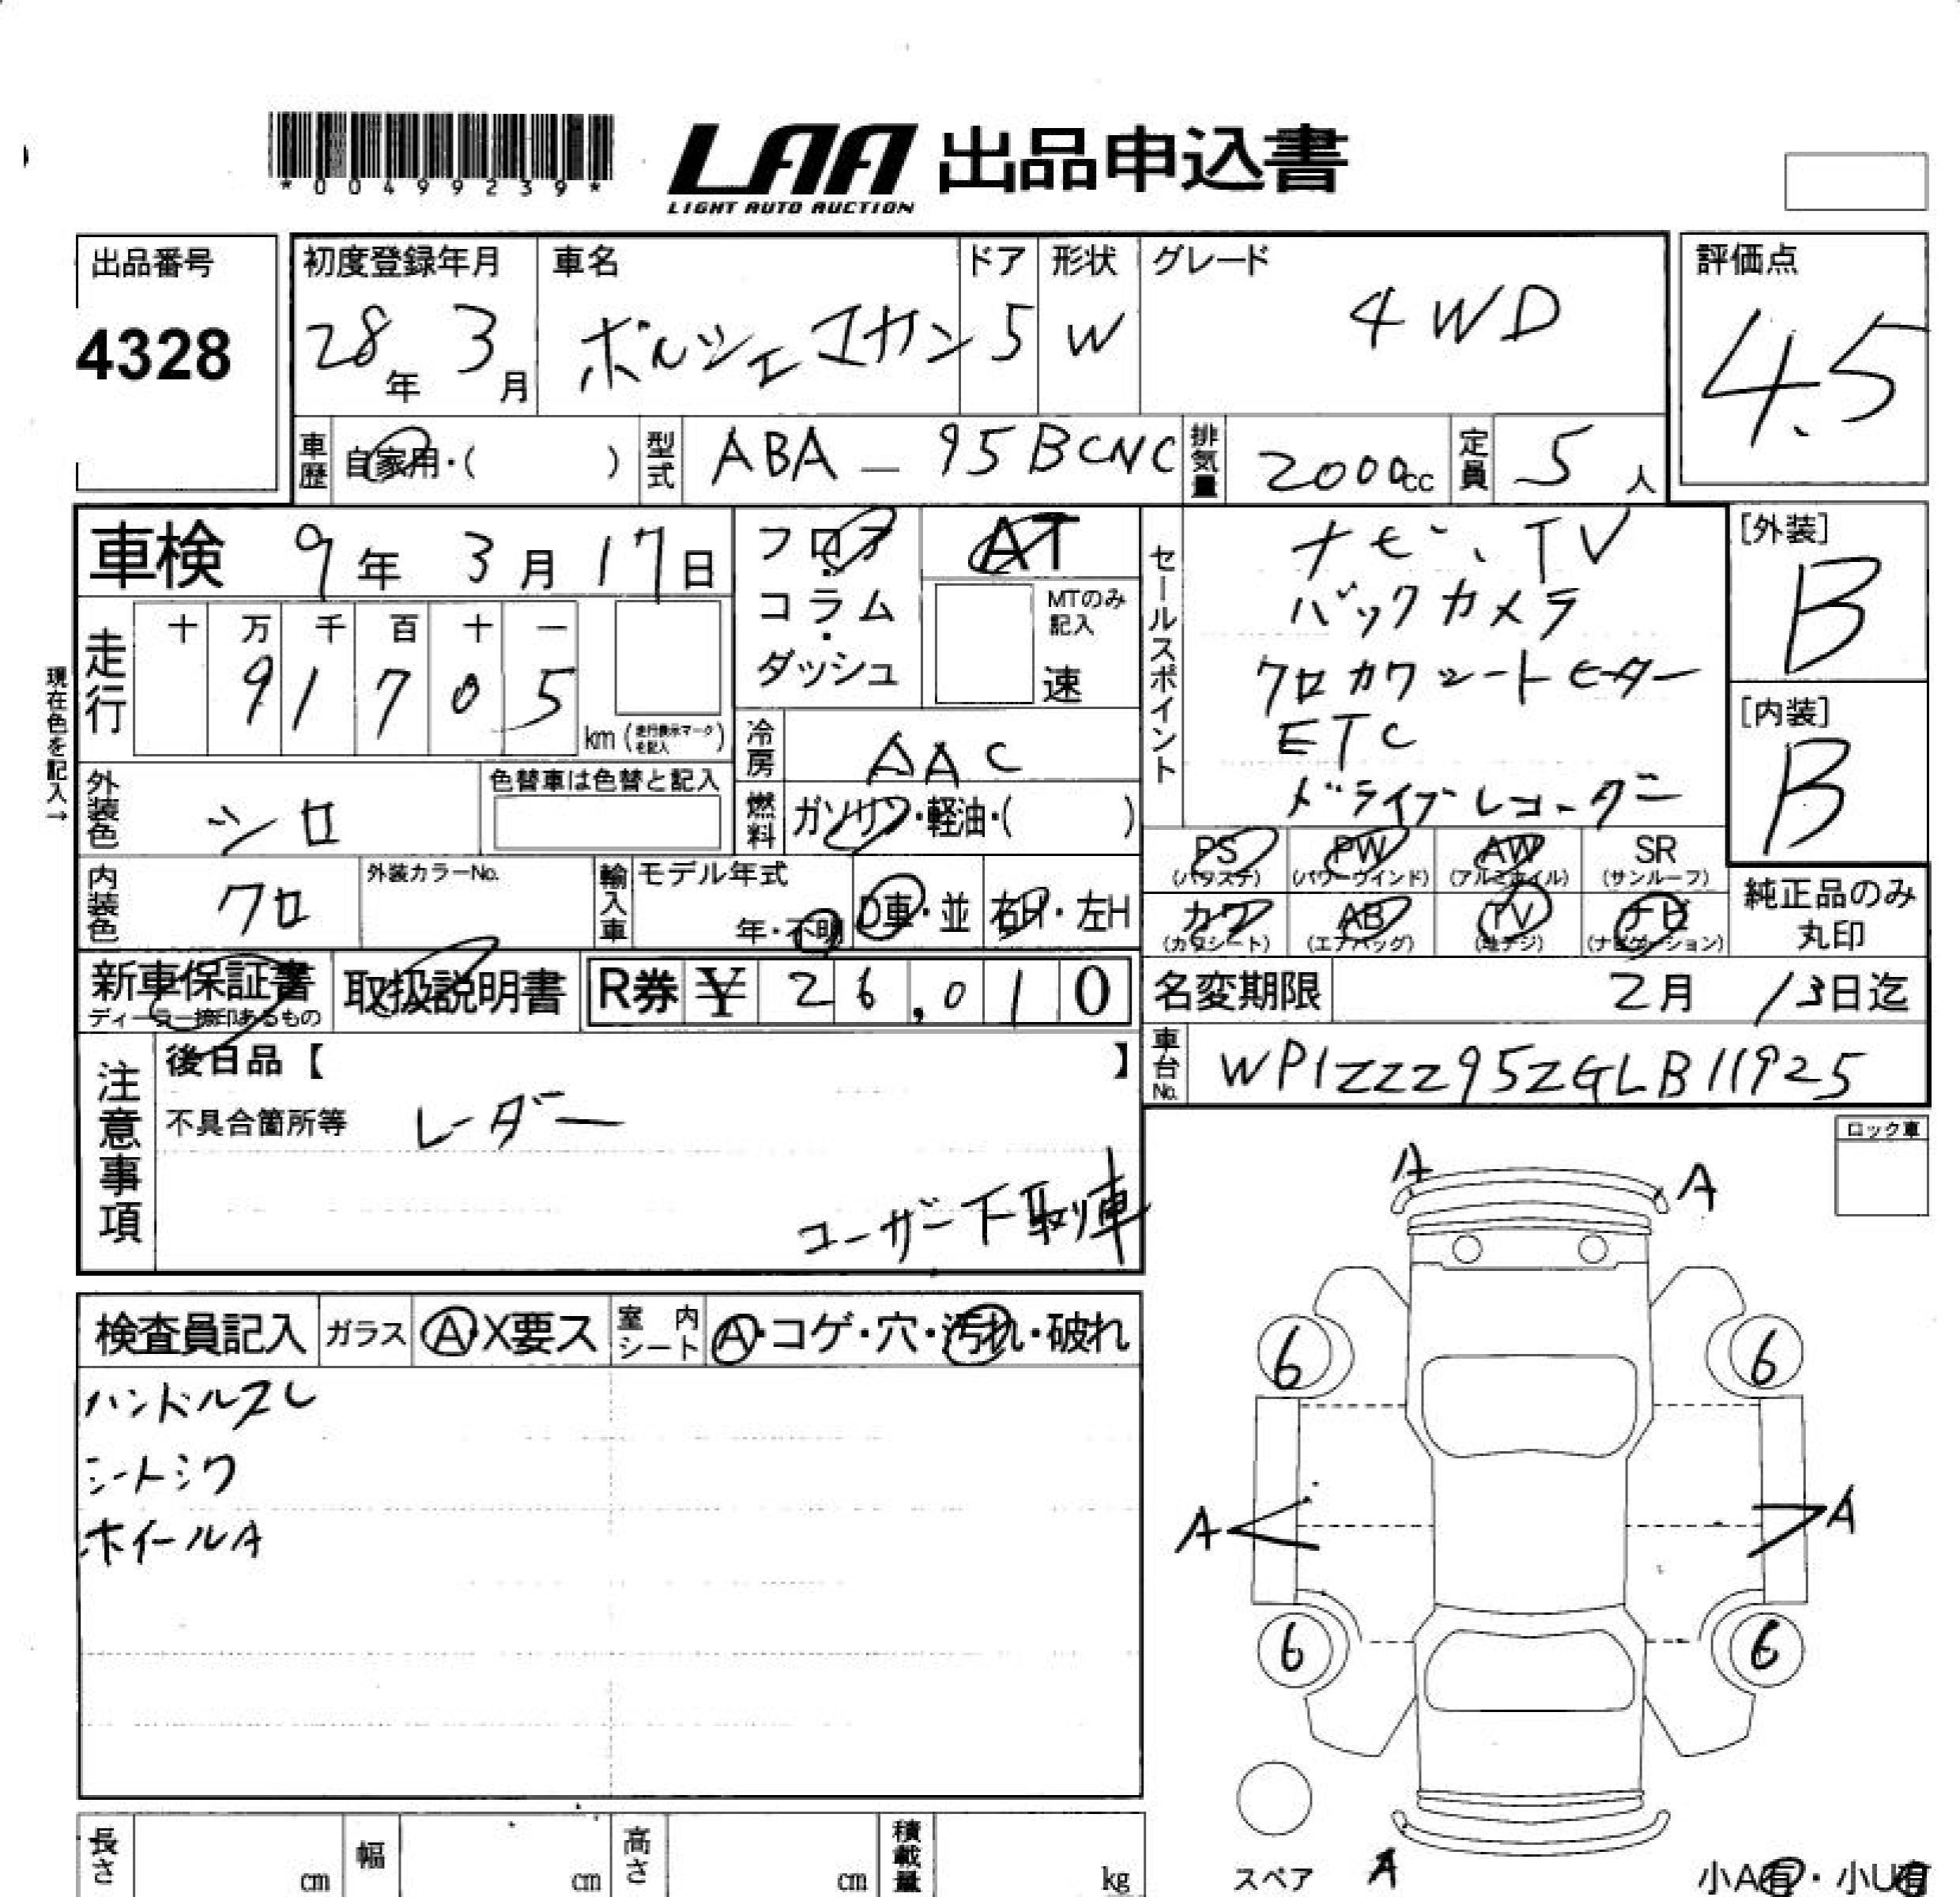 *00499239*
LAA 出品申込書
LIGHT AUTO AUCTION
出品番号
4328
初度登録年月
28年 3月
車名
ポルシェ マカン
ドア
5
形状
W
グレード
4WD
評価点
4.5
車歴
自家用・( )
型式
ABA - 95BCNC
排気量
2000cc
定員
5人
車検 9年 3月 17日
フロア・コラム・ダッシュ
AT
MTのみ記入
速
現在色を記入→
走行
十 万 千 百 十 一
9 1 7 0 5
km (走行表示マークを記入)
冷房
AAC
外装色
シロ
色替車は色替と記入
燃料
ガソリン・軽油・( )
内装色
クロ
外装カラーNo.
輸入車
モデル年式
年・不明
D車・並
右H・左H
セールスポイント
ナビ、TV
バックカメラ
クロカワシートヒーター
ETC
ドライブレコーダー
[外装]
B
[内装]
B
PS (パワステ)
PW (パワーウインド)
AW (アルミホイル)
SR (サンルーフ)
カワ (カワシート)
AB (エアバッグ)
TV (地デジ)
ナビ (ナビゲーション)
純正品のみ丸印
新車保証書
ディーラー捺印あるもの
取扱説明書
R券 ¥ 26,010
名変期限 2月 13日迄
車台No.
WP1ZZZ95ZGLB11925
注意事項
後日品【 】
不具合箇所等 レーダー
ユーザー下取車
ロック車
検査員記入
ガラス
A・X要ス
室内シート
A・コゲ・穴・汚れ・破れ
ハンドルスレ
シートシワ
ホイールA
A A
6 6
A A
6 6
スペア
A
小A有・小U有
長さ cm
幅 cm
高さ cm
積載量 kg